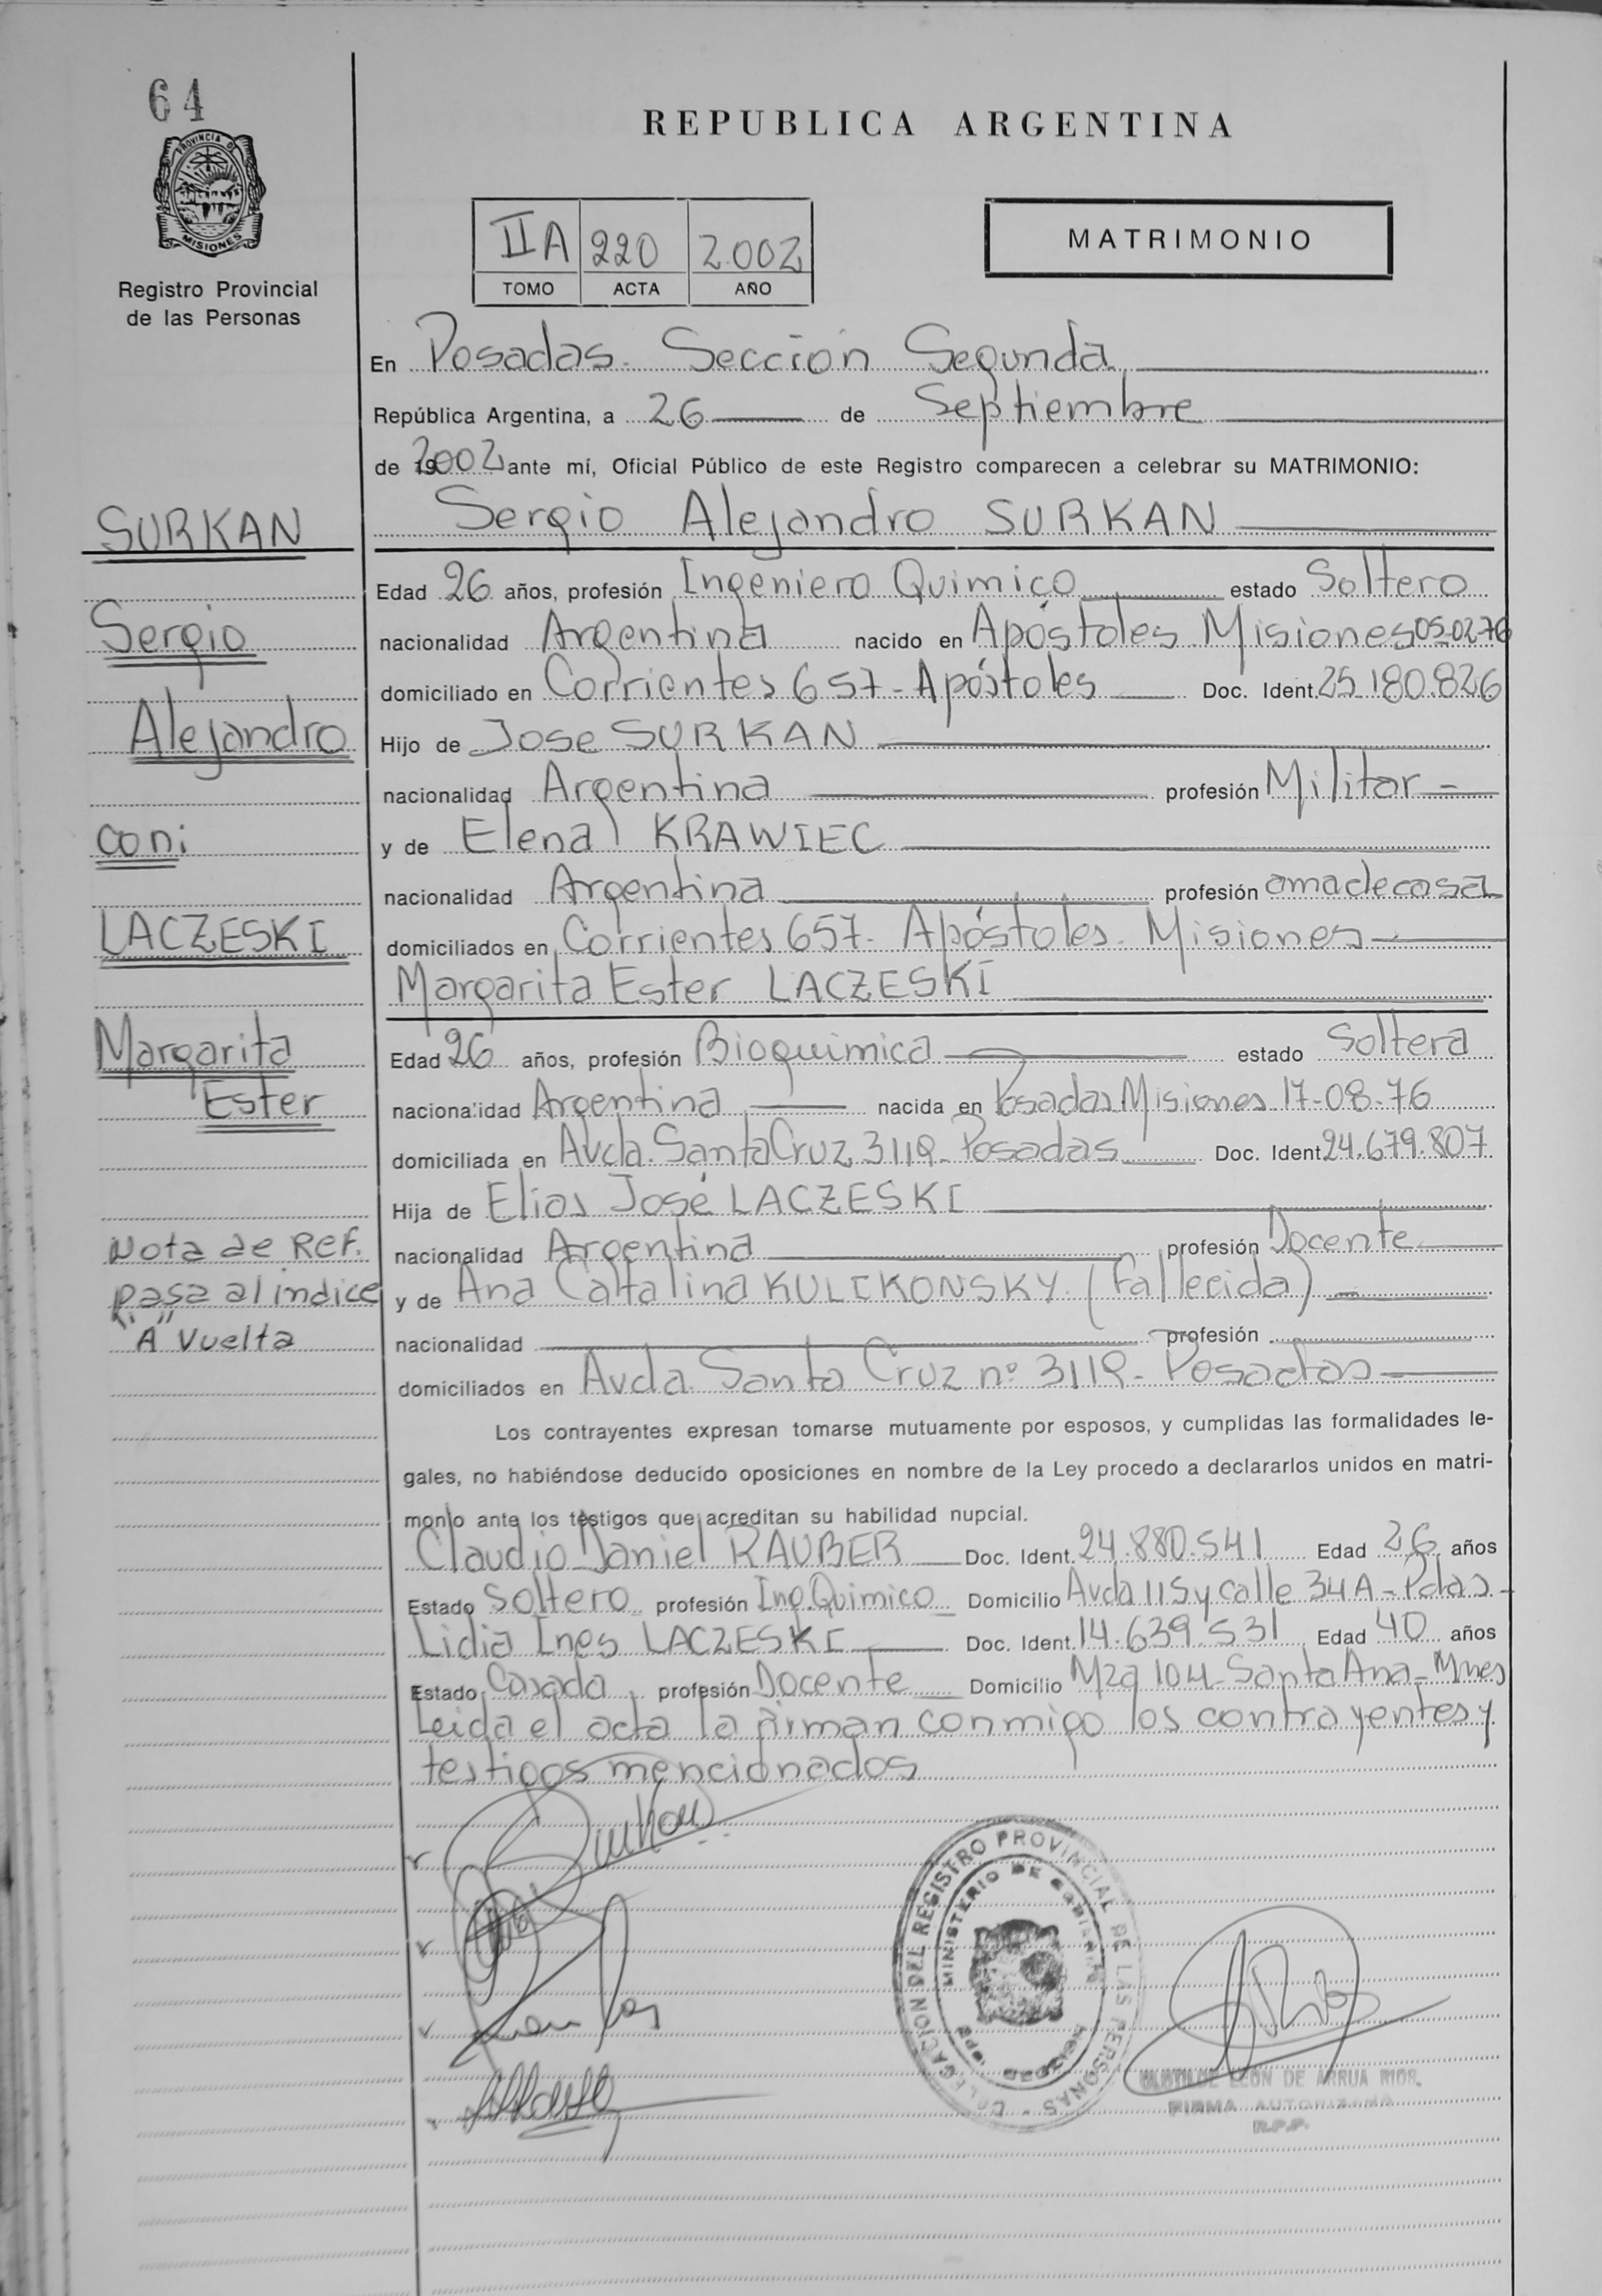 64
PROVINCIA D
MISIONES
Registro Provincial
de las Personas
REPUBLICA ARGENTINA
IIA 220 2.002
TOMO ACTA AÑO
MATRIMONIO
En Posadas. Sección Segunda
República Argentina, a 26 de Septiembre
de 2002 ante mí, Oficial Público de este Registro comparecen a celebrar su MATRIMONIO:
SURKAN
Sergio
Alejandro
con:
LACZESKI
Margarita
Ester
Nota de Ref.
pasa al indice
"A" Vuelta
Sergio Alejandro SURKAN
Edad 26 años, profesión Ingeniero Quimico estado Soltero
nacionalidad Argentina nacido en Apóstoles Misiones 05-02-76
domiciliado en Corrientes 657 - Apóstoles Doc. Ident. 25.180.826
Hijo de Jose SURKAN
nacionalidad Argentina profesión Militar
y de Elena KRAWIEC
nacionalidad Argentina profesión ama de casa
domiciliados en Corrientes 657 - Apóstoles - Misiones
Margarita Ester LACZESKI
Edad 26 años, profesión Bioquimica estado Soltera
nacionalidad Argentina nacida en Posadas Misiones 17-08-76
domiciliada en Avda. Santa Cruz 3119 - Posadas Doc. Ident. 24.679.807
Hija de Elias José LACZESKI
nacionalidad Argentina profesión Docente
y de Ana Catalina KULIKONSKY (Fallecida)
nacionalidad profesión
domiciliados en Avda. Santa Cruz nº 3119 - Posadas
Los contrayentes expresan tomarse mutuamente por esposos, y cumplidas las formalidades le-
gales, no habiéndose deducido oposiciones en nombre de la Ley procedo a declararlos unidos en matri-
monio ante los testigos que acreditan su habilidad nupcial.
Claudio Daniel RAUBER Doc. Ident. 24.880.541 Edad 26 años
Estado Soltero profesión Ing. Quimico Domicilio Avda 115 y calle 34A - Pdas -
Lidia Ines LACZESKI Doc. Ident. 14.639.531 Edad 40 años
Estado Casada profesión Docente Domicilio Mza 104 - Santa Ana - Mnes
Leida el acta la firman conmigo los contrayentes y
testigos mencionados
Surkan
DELEGACION DEL REGISTRO PROVINCIAL DE LAS PERSONAS
MINISTERIO DE GOBIERNO
LEON DE ARRUA RIOS
FIRMA AUTORIZADA
R.P.P.